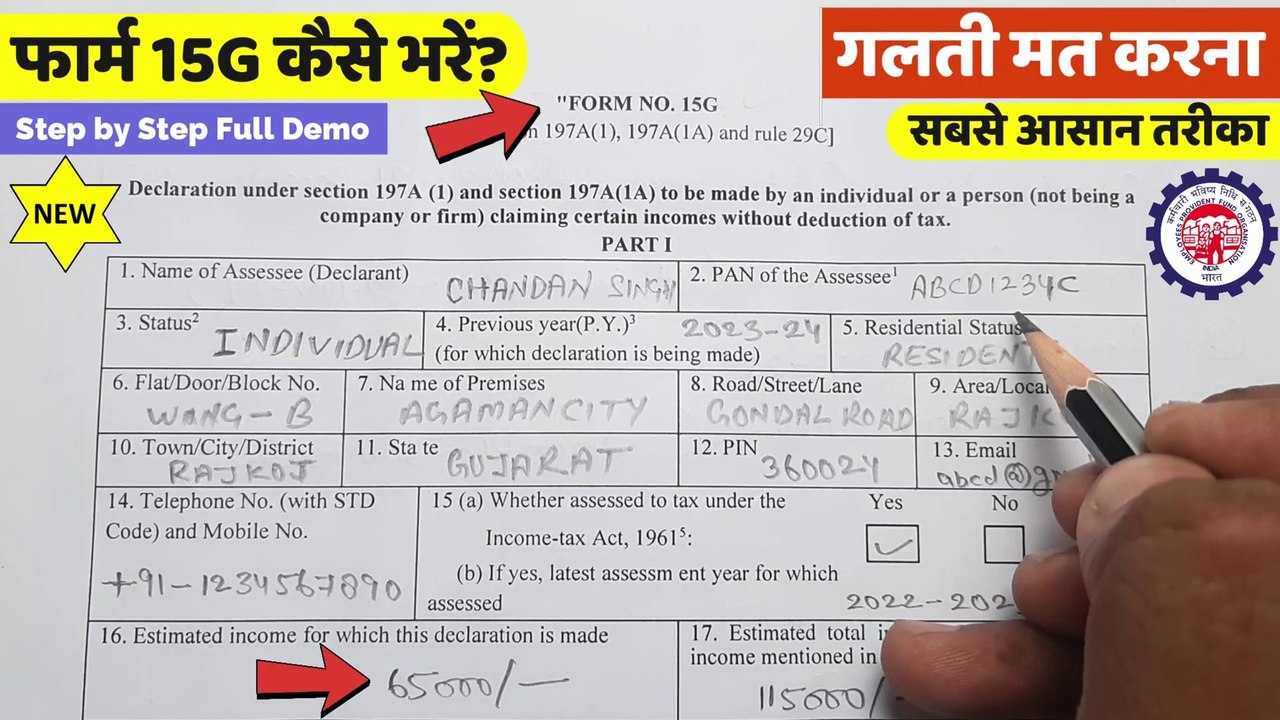 फार्म 15G कैसे भरें?
गलती मत करना
Step by Step Full Demo
सबसे आसान तरीका
NEW
"FORM NO. 15G
197A(1), 197A(1A) and rule 29C]
Declaration under section 197A (1) and section 197A(1A) to be made by an individual or a person (not being a
company or firm) claiming certain incomes without deduction of tax.
PART I
कर्मचारी भविष्य निधि संगठन
EMPLOYEES PROVIDENT FUND ORGANISATION
INDIA
भारत
1. Name of Assessee (Declarant)
CHANDAN SINGH
2. PAN of the Assessee¹
ABCD1234C
3. Status²
INDIVIDUAL
4. Previous year(P.Y.)³
2023-24
(for which declaration is being made)
5. Residential Status
RESIDENT
6. Flat/Door/Block No.
WANG-B
7. Na me of Premises
AGAMAN CITY
8. Road/Street/Lane
GONDAL ROAD
9. Area/Local
10. Town/City/District
RAJKOT
11. Sta te
GUJARAT
12. PIN
360024
13. Email
14. Telephone No. (with STD
Code) and Mobile No.
+91-1234567890
15 (a) Whether assessed to tax under the
Income-tax Act, 1961⁵:
Yes
No
(b) If yes, latest assessm ent year for which
assessed
2022-202
16. Estimated income for which this declaration is made
65000/-
17. Estimated total
income mentioned in
115000/-